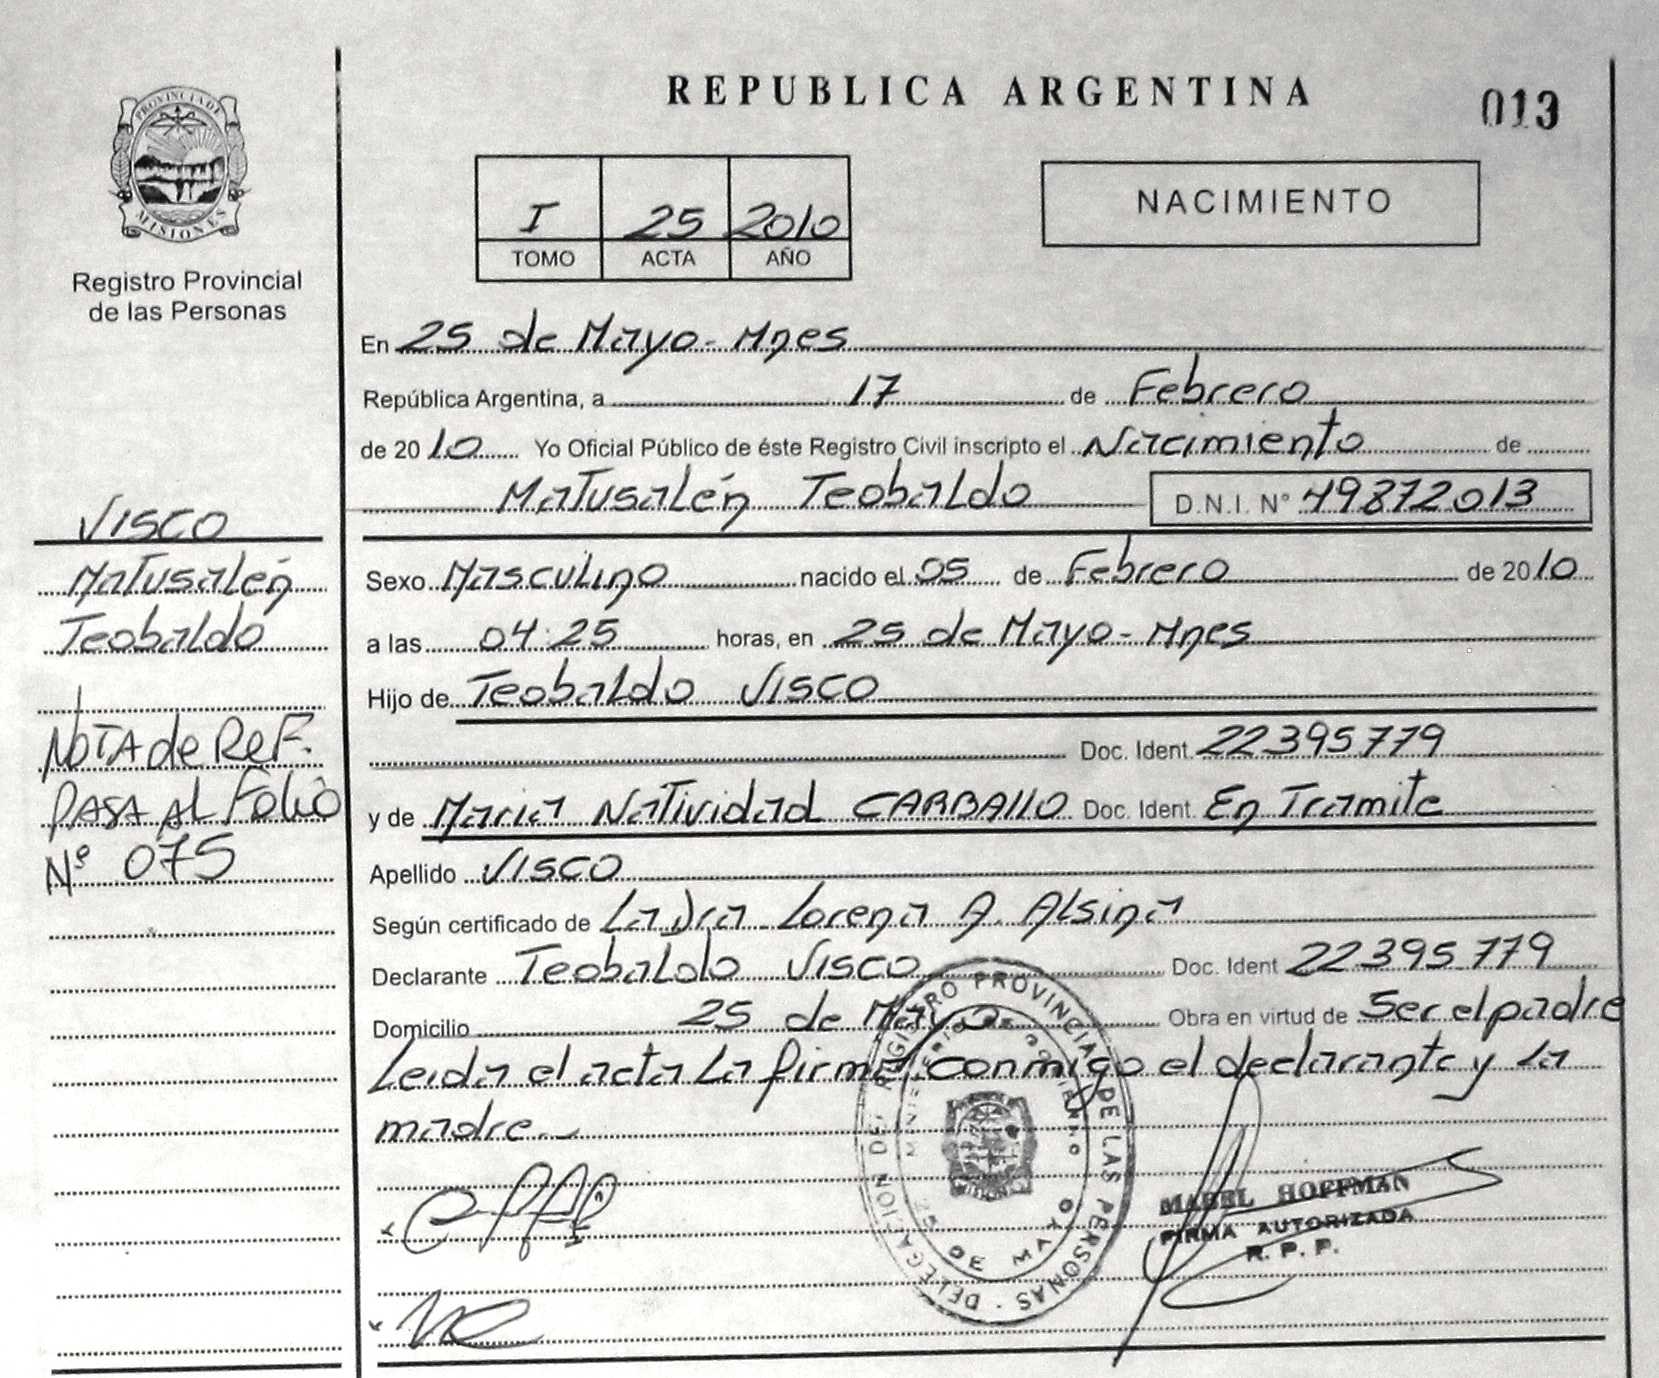 REPUBLICA ARGENTINA
013
PROVINCIA DE
MISIONES
Registro Provincial
de las Personas
I 25 2010
TOMO ACTA AÑO
NACIMIENTO
En 25 de Mayo - Mnes
República Argentina, a 17 de Febrero
de 2010 Yo Oficial Público de éste Registro Civil inscripto el Nacimiento de
Matusalén Teobaldo D.N.I. N° 49872013
VISCO
Matusalén
Teobaldo
NOTA de REF.
PASA AL Folio
Nº 075
Sexo Masculino nacido el 05 de Febrero de 2010
a las 04:25 horas, en 25 de Mayo - Mnes
Hijo de Teobaldo VISCO
Doc. Ident. 22395779
y de Maria Natividad CARBALLO Doc. Ident. En Tramite
Apellido VISCO
Según certificado de La Dra. Lorena A. Alsina
Declarante Teobaldo VISCO Doc. Ident 22395779
Domicilio 25 de Mayo Obra en virtud de Ser el padre
Leida el acta La firma conmigo el declarante y La
madre
DELEGACION DEL REGISTRO PROVINCIAL DE LAS PERSONAS
MINISTERIO DE GOBIERNO
25 DE MAYO
MISIONES
MABEL HOFFMAN
FIRMA AUTORIZADA
R. P. P.